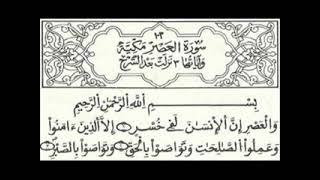 ١٠٣
سُورَةُ الْعَصْرِ مَكِّيَّة
وَآيَاتُهَا ٣ نَزَلَتْ بَعْدَ الشَّرْحِ
بِسْمِ اللَّهِ الرَّحْمَٰنِ الرَّحِيمِ
وَالْعَصْرِ ١ إِنَّ الْإِنسَٰنَ لَفِي خُسْرٍ ٢ إِلَّا الَّذِينَ ءَامَنُوا
وَعَمِلُوا الصَّٰلِحَٰتِ وَتَوَاصَوْا بِالْحَقِّ وَتَوَاصَوْا بِالصَّبْرِ ٣